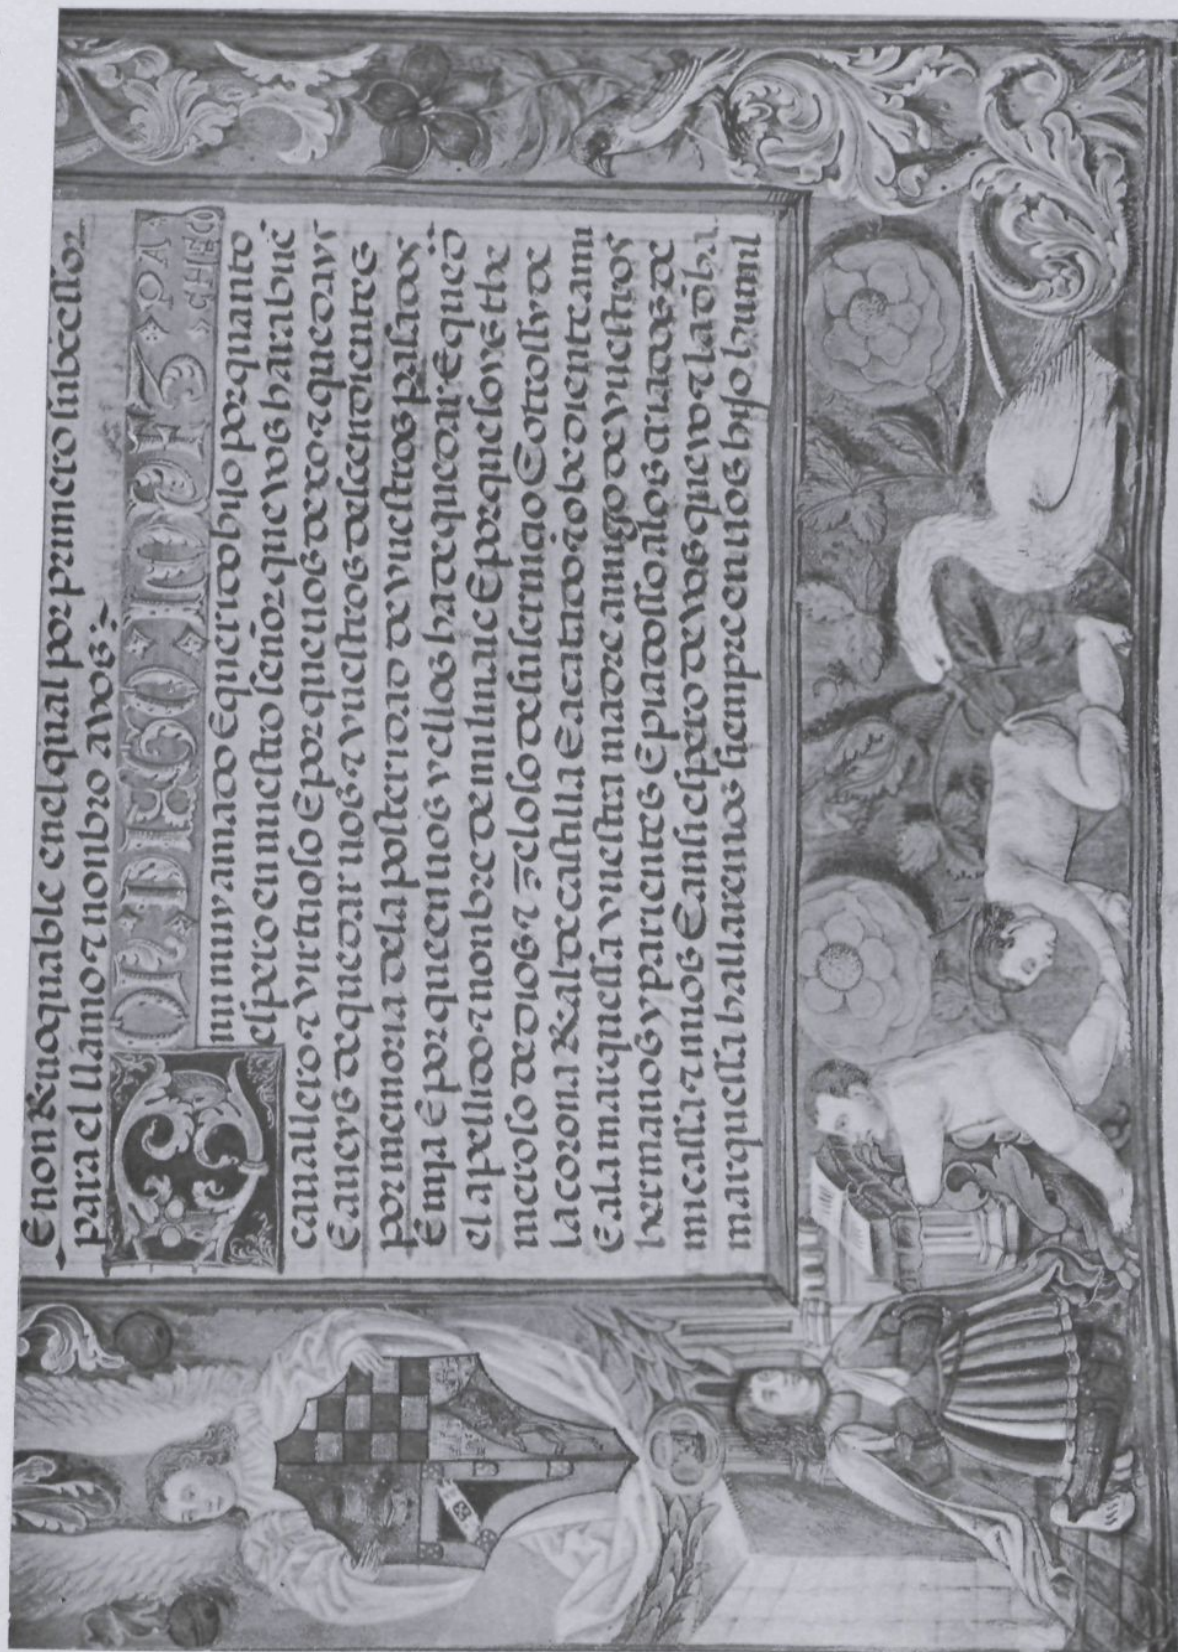 E non Reuoquable enel qual por primero subcessor
para el llamo ⁊ nonbro a vos
ON DIEGO LOPEZ PA
CHECO
mi muy amado E querido hijo por quanto
espero en nuestro señor que vos hara bue
cauallero ⁊ virtuoso E por que en os dexo ⁊ que da vr
E aueys de quedar nos ⁊ vuestros descendientes
por memoria dela posteridad de vuestros pasados
E mya E por que en nos y ellos ha de quedar E que
el apellido ⁊ nonbre de mi linaie E por que
meroso de dios ⁊ zeloso de su seruiçio E otrosy de
la corona Real de castilla E acatado ⁊ obediente a mi
E ala marquesa vuestra madre amigo de vuestros
hermanos y parientes E piadoso alos criados de
mi casa ⁊ mios E ansi espero de vos que yo ⁊ la
marquesa hallaremos sienpre en uos hijo humil